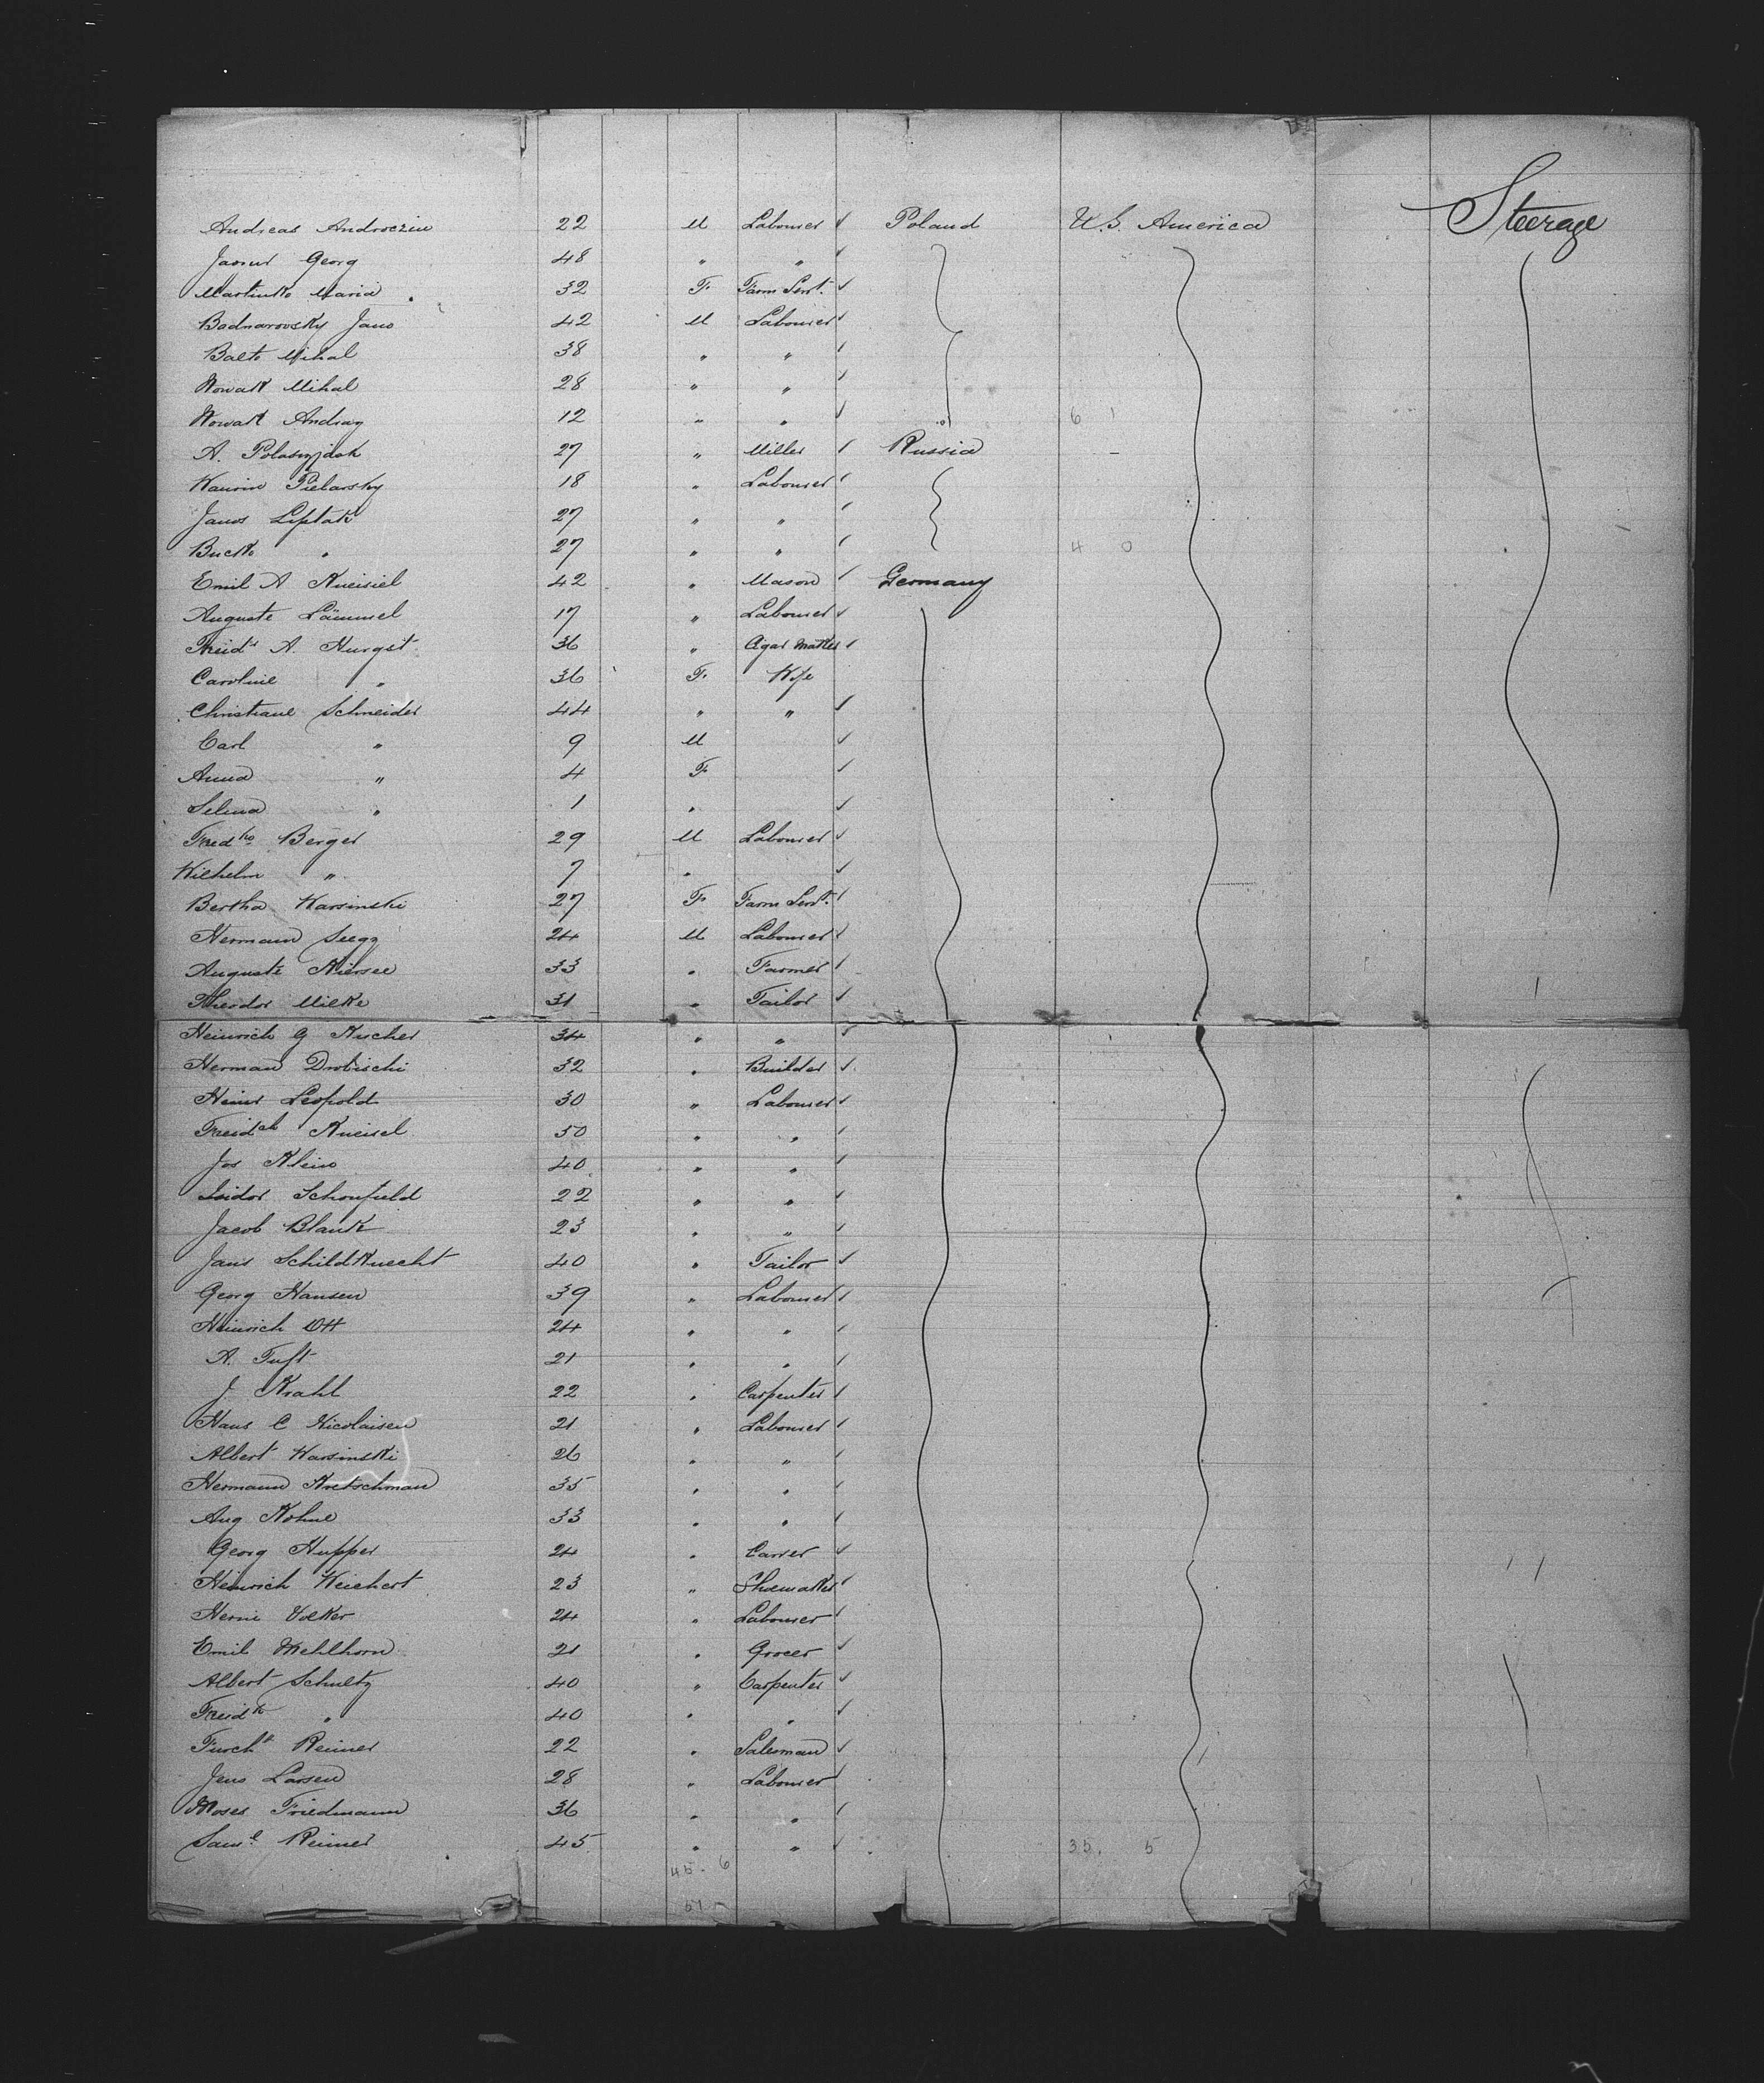 Steerage
Andreas Androczin 22 M Labourer ✓ Poland U.S. America
Janus Georg 48 " " ✓
Martinko Maria 32 F. Farm Servt. ✓
Bodnarovsky Jano 42 M Labourer ✓
Balto Mihal 38 " " ✓
Nowak Mihal 28 " " ✓
Nowak Andray 12 " " ✓ 6 1
A. 27 " Miller ✓ Russia -
Pielarsky 18 " Labourer ✓
Janos Liptak 27 " " ✓
Bucko " 27 " " ✓ 4 0
Emil A Kneisiel 42 " Mason ✓ Germany
Auguste Lämmel 17 " Labourer ✓
Freidr A. Hurgst 36 " Cigar Maker ✓
Caroline " 36 F. Wife
Christiane Schneider 44 " " ✓
Carl " 9 M ✓
Anna " 4 F ✓
Selina " 1 " ✓
Fredko Berger 29 M Labourer ✓
Wilhelm " 7 " ✓
Bertha Karsinski 27 F Farm Servt. ✓
Hermann Seegg 24 M Labourer ✓
Auguste Niersee 33 " Farmer ✓
Theodor Milke 31 " Tailor ✓
Heinrich G Kischer 34 " " ✓
Herman Drobischi 32 " Builder ✓
Heinr Leopold 30 " Labourer ✓
Freidch Kneisel 50 " " ✓
Jos Klein 40 " " ✓
Isidor Schonfield 22 " " ✓
Jacob Blank 23 " " ✓
Jans Schildknecht 40 " Tailor ✓
Georg Hansen 39 " Labourer ✓
Heinrich Ott 24 " " ✓
A. Tuft 21 " " ✓
J. Krahl 22 " Carpenter ✓
Hans C Nicolaisen 21 " Labourer ✓
Albert Karsinski 26 " " ✓
Hermann Kretschman 35 " " ✓
Aug Kohne 33 " " ✓
Georg Hupper 24 " Carver ✓
Heinrich Weichert 23 " Shoemaker ✓
Henri Volker 24 " Labourer ✓
Emil Mehlhorn 21 " Grocer ✓
Albert Schultz 40 " Carpenter ✓
Freidk " 40 " " ✓
Reimer 22 " Salesman ✓
Jens Larsen 28 " Labourer ✓
Moses Friedmann 36 " " ✓
Saml Reimer 45 " " ✓ 35. 5
45. 6
51